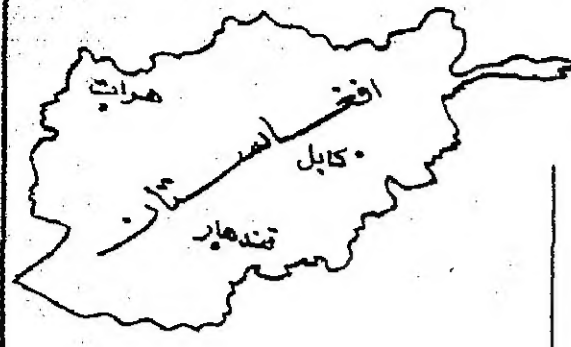 هرات
افغانستان
کابل
قندهار